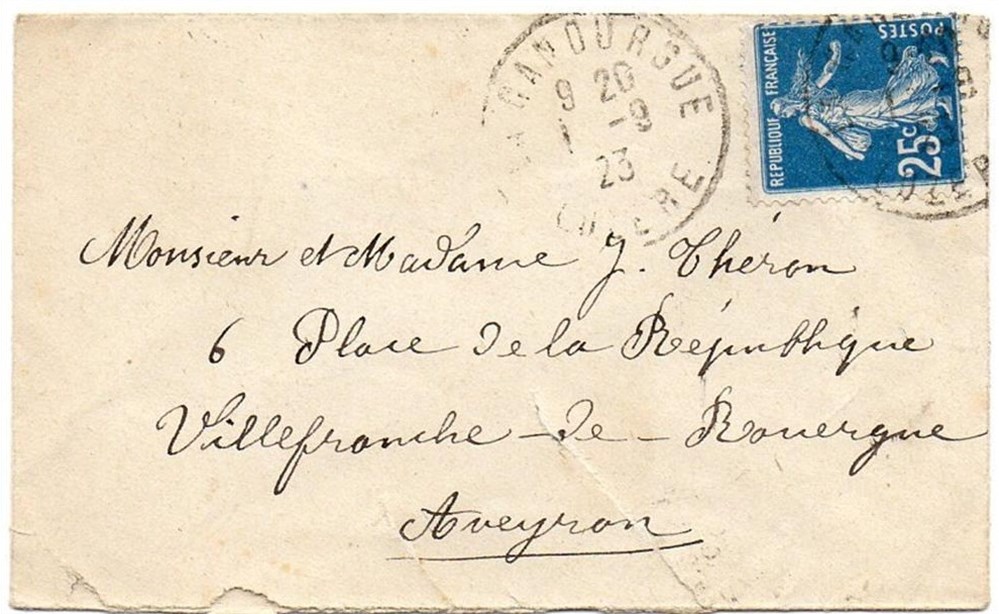 LA CANOURGUE
9 20
1 -9
23
LOZERE
REPUBLIQUE FRANÇAISE
POSTES
25c
Monsieur et Madame J. Théron
6 Place de la République
Villefranche-de-Rouergue
Aveyron